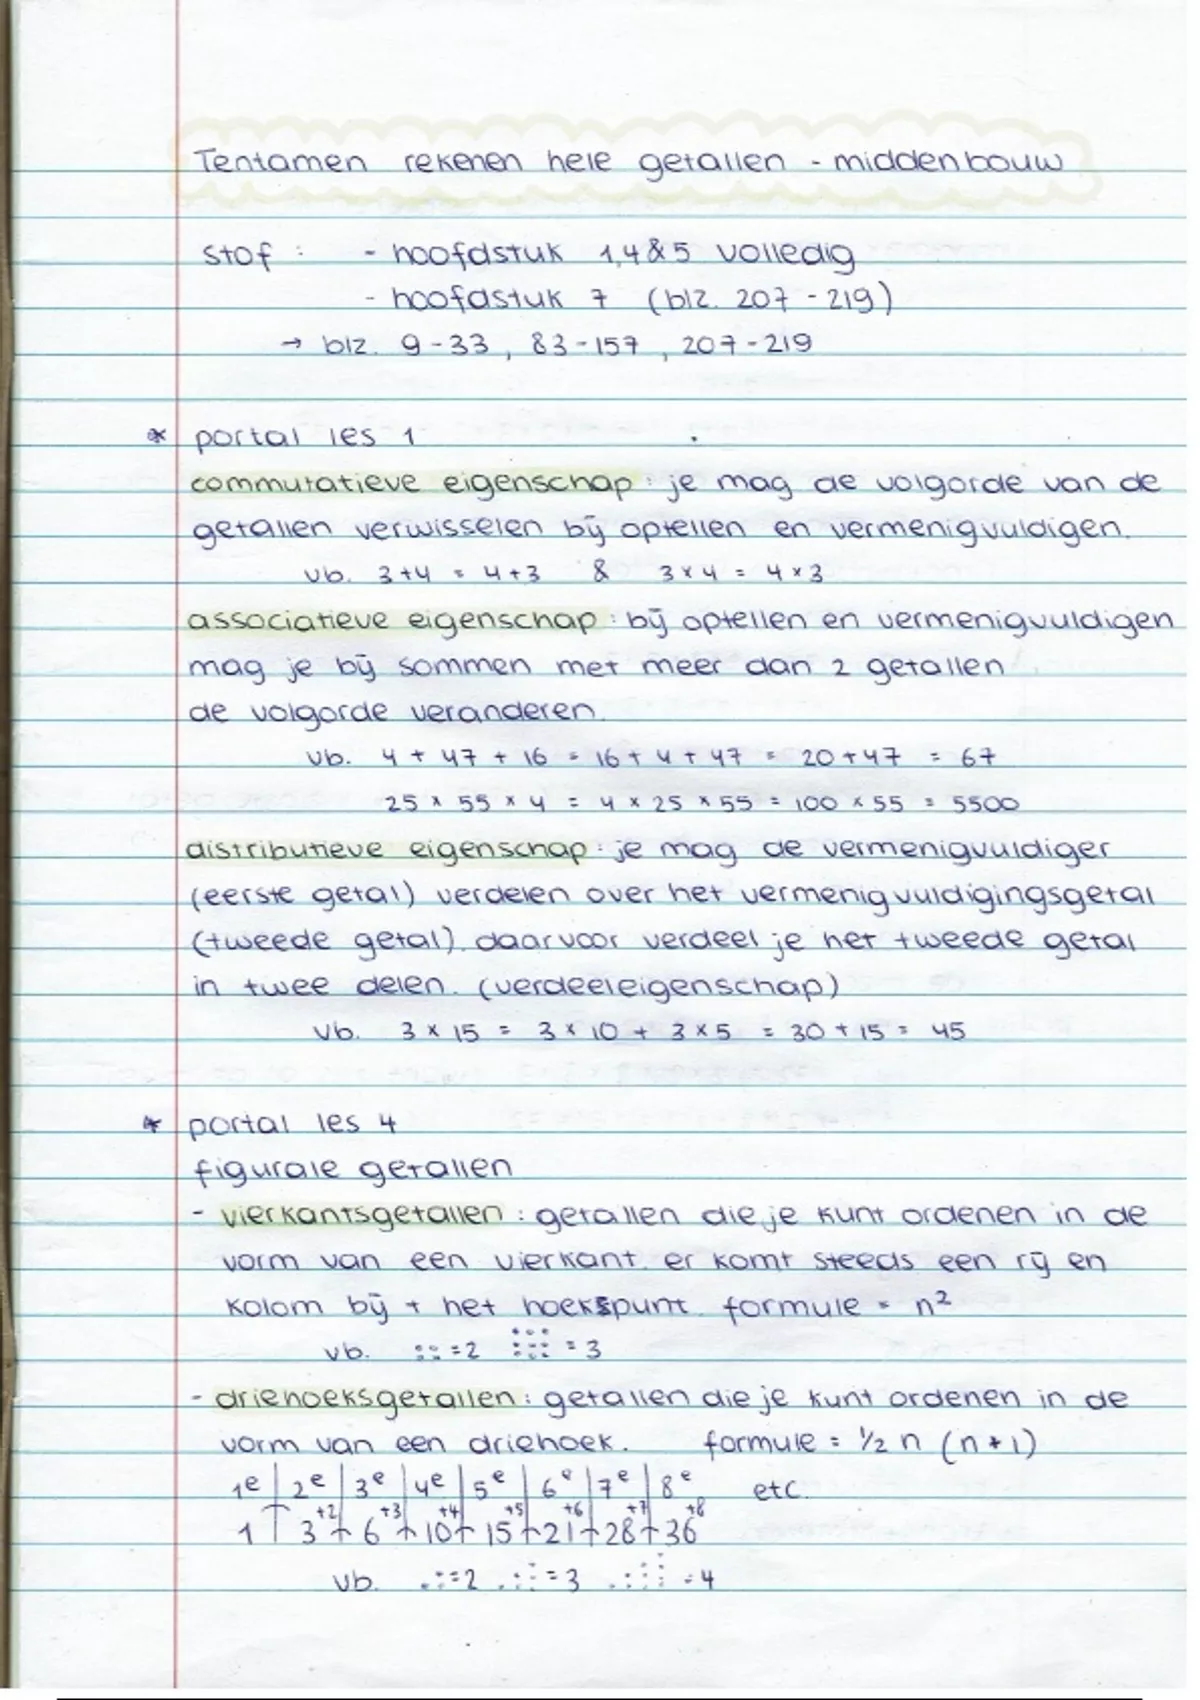 Tentamen rekenen hele getallen - middenbouw
stof : - hoofdstuk 1,4 & 5 volledig
- hoofdstuk 7 (blz. 207 - 219)
→ blz. 9-33, 83-157, 207-219
* portal les 1
commutatieve eigenschap : je mag de volgorde van de
getallen verwisselen bij optellen en vermenigvuldigen.
vb. 3+4 = 4+3 & 3 x 4 = 4 x 3
associatieve eigenschap : bij optellen en vermenigvuldigen
mag je bij sommen met meer dan 2 getallen
de volgorde veranderen.
vb. 4 + 47 + 16 = 16 + 4 + 47 = 20 + 47 = 67
25 x 55 x 4 = 4 x 25 x 55 = 100 x 55 = 5500
distributieve eigenschap : je mag de vermenigvuldiger
(eerste getal) verdelen over het vermenigvuldigingsgetal
(tweede getal). daarvoor verdeel je het tweede getal
in twee delen. (verdeeleigenschap)
vb. 3 x 15 = 3 x 10 + 3 x 5 = 30 + 15 = 45
* portal les 4
figurale getallen
- vierkantsgetallen : getallen die je kunt ordenen in de
vorm van een vierkant. er komt steeds een rij en
kolom bij + het hoekspunt. formule = n²
vb. = 2 = 3
- driehoeksgetallen : getallen die je kunt ordenen in de
vorm van een driehoek. formule = ½ n (n+1)
1e | 2e | 3e | 4e | 5e | 6e | 7e | 8e etc.
+2 +3 +4 +5 +6 +7 +8
1 3 6 10 15 21 28 36
vb. = 2 = 3 = 4